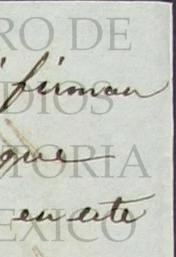 RO DE
firman
DIOS
que
TORIA
en este
EXICO